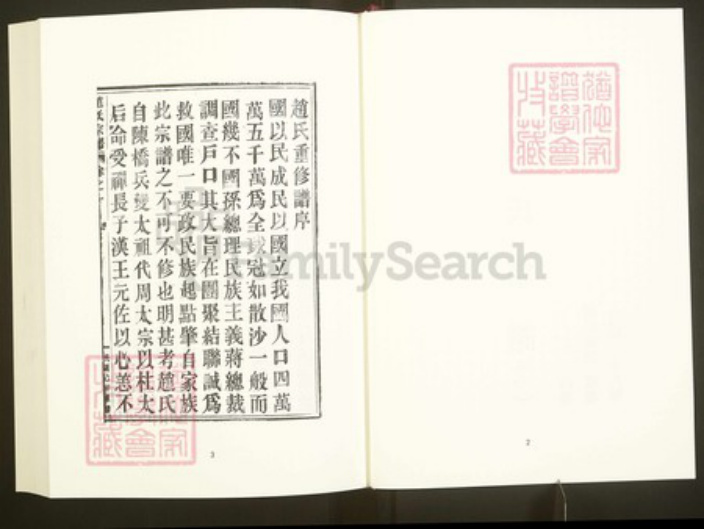 趙氏重修譜序
國以民成民以國立我國人口四萬
萬五千萬爲全球冠如散沙一般而
國幾不國孫總理民族主義蔣總裁
調查戶口其大旨在團聚結聯誠爲
救國唯一要政民族起點肇自家族
此宗譜之不可不修也明甚考趙氏
自陳橋兵變太祖代周太宗以杜太
后命受禪長子漢王元佐以心恙不
趙氏宗譜
3
2
FamilySearch